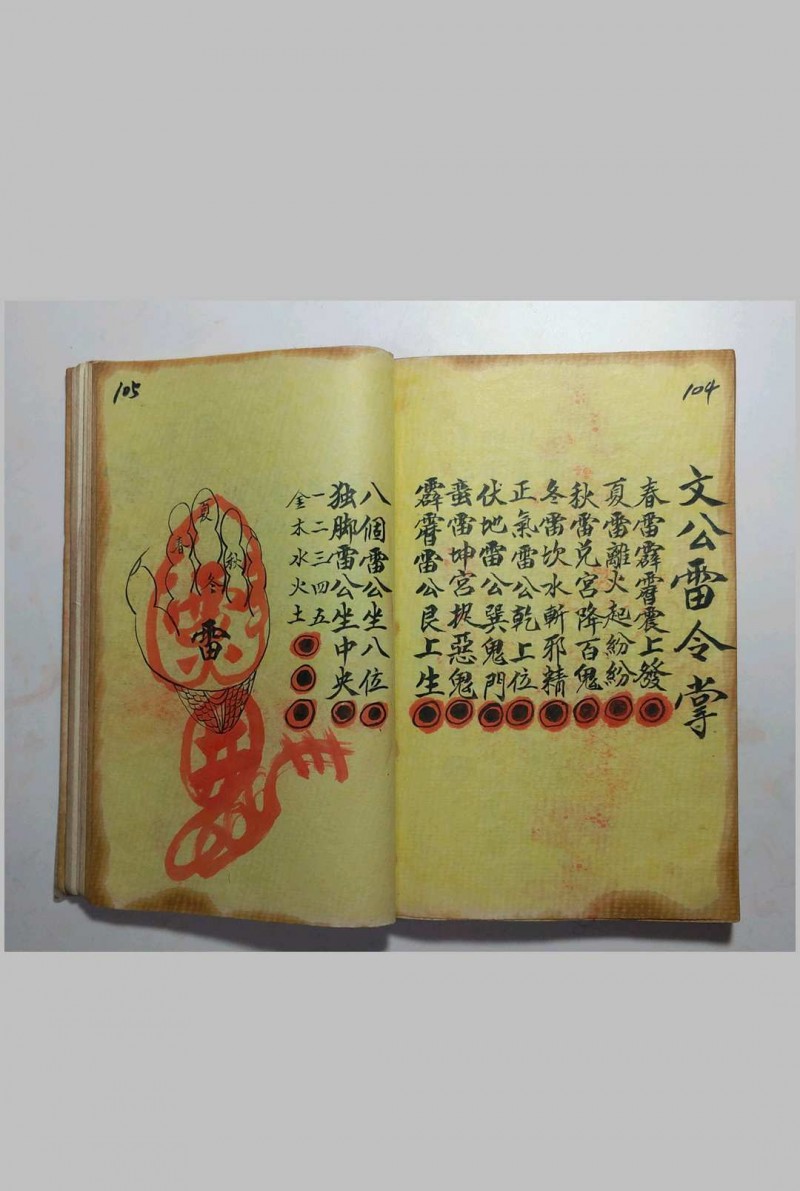 104
文公雷令掌
春雷霹霄震上發
夏雷離火起紛紛
秋雷兑宮降百鬼
冬雷坎水斬邪精
正氣雷公乾上位
伏地雷公巽鬼門
蛮雷坤宮捉惡鬼
霹霄雷公艮上生
105
八個雷公坐八位
独脚雷公坐中央
一二三四五
金木水火土
春
夏
秋
冬
雷